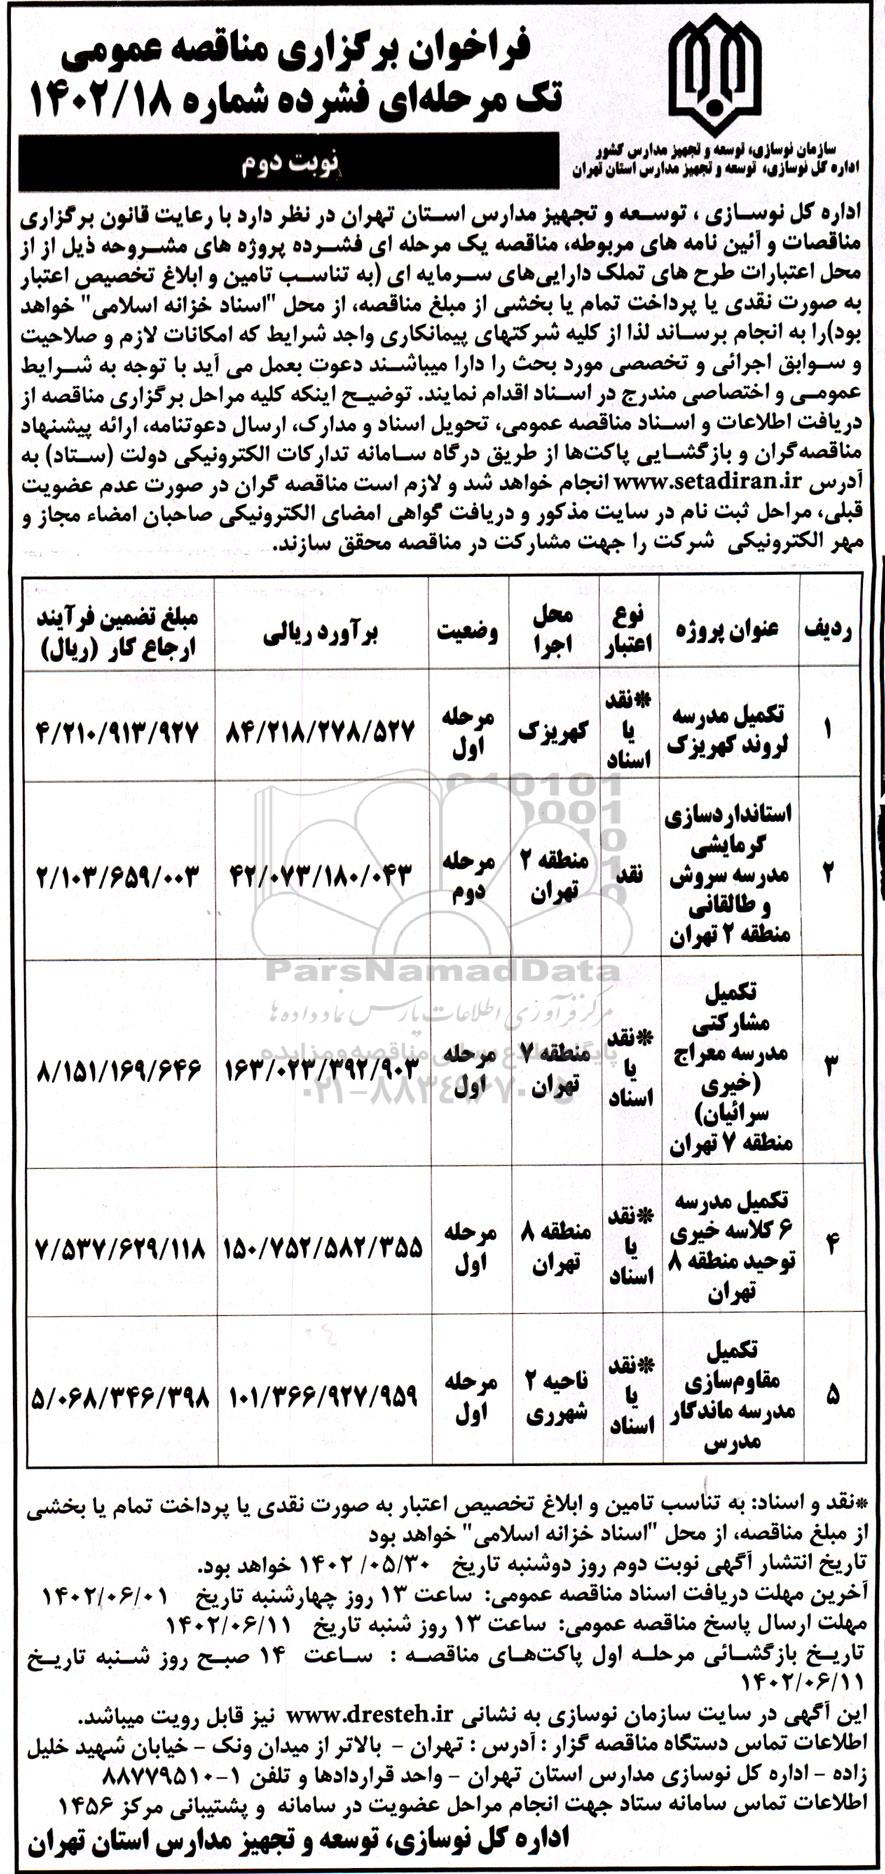 سازمان نوسازی، توسعه و تجهیز مدارس کشور
اداره کل نوسازی، توسعه و تجهیز مدارس استان تهران
فراخوان برگزاری مناقصه عمومی
تک مرحله‌ای فشرده شماره ۱۴۰۲/۱۸
نوبت دوم
اداره کل نوسازی ، توسعه و تجهیز مدارس استان تهران در نظر دارد با رعایت قانون برگزاری
مناقصات و آئین نامه های مربوطه، مناقصه یک مرحله ای فشرده پروژه های مشروحه ذیل از از
محل اعتبارات طرح های تملک دارایی‌های سرمایه ای (به تناسب تامین و ابلاغ تخصیص اعتبار
به صورت نقدی یا پرداخت تمام یا بخشی از مبلغ مناقصه، از محل "اسناد خزانه اسلامی" خواهد
بود)را به انجام برساند لذا از کلیه شرکتهای پیمانکاری واجد شرایط که امکانات لازم و صلاحیت
و سوابق اجرائی و تخصصی مورد بحث را دارا میباشند دعوت بعمل می آید با توجه به شرایط
عمومی و اختصاصی مندرج در اسناد اقدام نمایند. توضیح اینکه کلیه مراحل برگزاری مناقصه از
دریافت اطلاعات و اسناد مناقصه عمومی، تحویل اسناد و مدارک، ارسال دعوتنامه، ارائه پیشنهاد
مناقصه‌گران و بازگشایی پاکت‌ها از طریق درگاه سامانه تدارکات الکترونیکی دولت (ستاد) به
آدرس www.setadiran.ir انجام خواهد شد و لازم است مناقصه گران در صورت عدم عضویت
قبلی، مراحل ثبت نام در سایت مذکور و دریافت گواهی امضای الکترونیکی صاحبان امضاء مجاز و
مهر الکترونیکی شرکت را جهت مشارکت در مناقصه محقق سازند.
ردیف عنوان پروژه نوع اعتبار محل اجرا وضعیت برآورد ریالی مبلغ تضمین فرآیند ارجاع کار (ریال)
۱ تکمیل مدرسه لروند کهریزک *نقد یا اسناد کهریزک مرحله اول ۸۴/۲۱۸/۲۷۸/۵۲۷ ۴/۲۱۰/۹۱۳/۹۲۷
۲ استانداردسازی گرمایشی مدرسه سروش و طالقانی منطقه ۲ تهران نقد منطقه ۲ تهران مرحله دوم ۴۲/۰۷۳/۱۸۰/۰۴۳ ۲/۱۰۳/۶۵۹/۰۰۳
۳ تکمیل مشارکتی مدرسه معراج (خیری سرائیان) منطقه ۷ تهران *نقد یا اسناد منطقه ۷ تهران مرحله اول ۱۶۳/۰۲۳/۳۹۲/۹۰۳ ۸/۱۵۱/۱۶۹/۶۴۶
۴ تکمیل مدرسه ۶ کلاسه خیری توحید منطقه ۸ تهران *نقد یا اسناد منطقه ۸ تهران مرحله اول ۱۵۰/۷۵۲/۵۸۲/۳۵۵ ۷/۵۳۷/۶۲۹/۱۱۸
۵ تکمیل مقاوم‌سازی مدرسه ماندگار مدرس *نقد یا اسناد ناحیه ۲ شهرری مرحله اول ۱۰۱/۳۶۶/۹۲۷/۹۵۹ ۵/۰۶۸/۳۴۶/۳۹۸
ParsNamadData
مرکز فرآوری اطلاعات پارس نماد داده ها
*نقد و اسناد: به تناسب تامین و ابلاغ تخصیص اعتبار به صورت نقدی یا پرداخت تمام یا بخشی
از مبلغ مناقصه، از محل "اسناد خزانه اسلامی" خواهد بود
تاریخ انتشار آگهی نوبت دوم روز دوشنبه تاریخ ۱۴۰۲ /۰۵/۳۰ خواهد بود.
آخرین مهلت دریافت اسناد مناقصه عمومی: ساعت ۱۳ روز چهارشنبه تاریخ ۱۴۰۲/۰۶/۰۱
مهلت ارسال پاسخ مناقصه عمومی: ساعت ۱۳ روز شنبه تاریخ ۱۴۰۲/۰۶/۱۱
تاریخ بازگشائی مرحله اول پاکت‌های مناقصه : ساعت ۱۴ صبح روز شنبه تاریخ
۱۴۰۲/۰۶/۱۱
این آگهی در سایت سازمان نوسازی به نشانی www.dresteh.ir نیز قابل رویت میباشد.
اطلاعات تماس دستگاه مناقصه گزار : آدرس : تهران - بالاتر از میدان ونک - خیابان شهید خلیل
زاده - اداره کل نوسازی مدارس استان تهران - واحد قراردادها و تلفن ۱-۸۸۷۷۹۵۱۰
اطلاعات تماس سامانه ستاد جهت انجام مراحل عضویت در سامانه و پشتیبانی مرکز ۱۴۵۶
اداره کل نوسازی، توسعه و تجهیز مدارس استان تهران